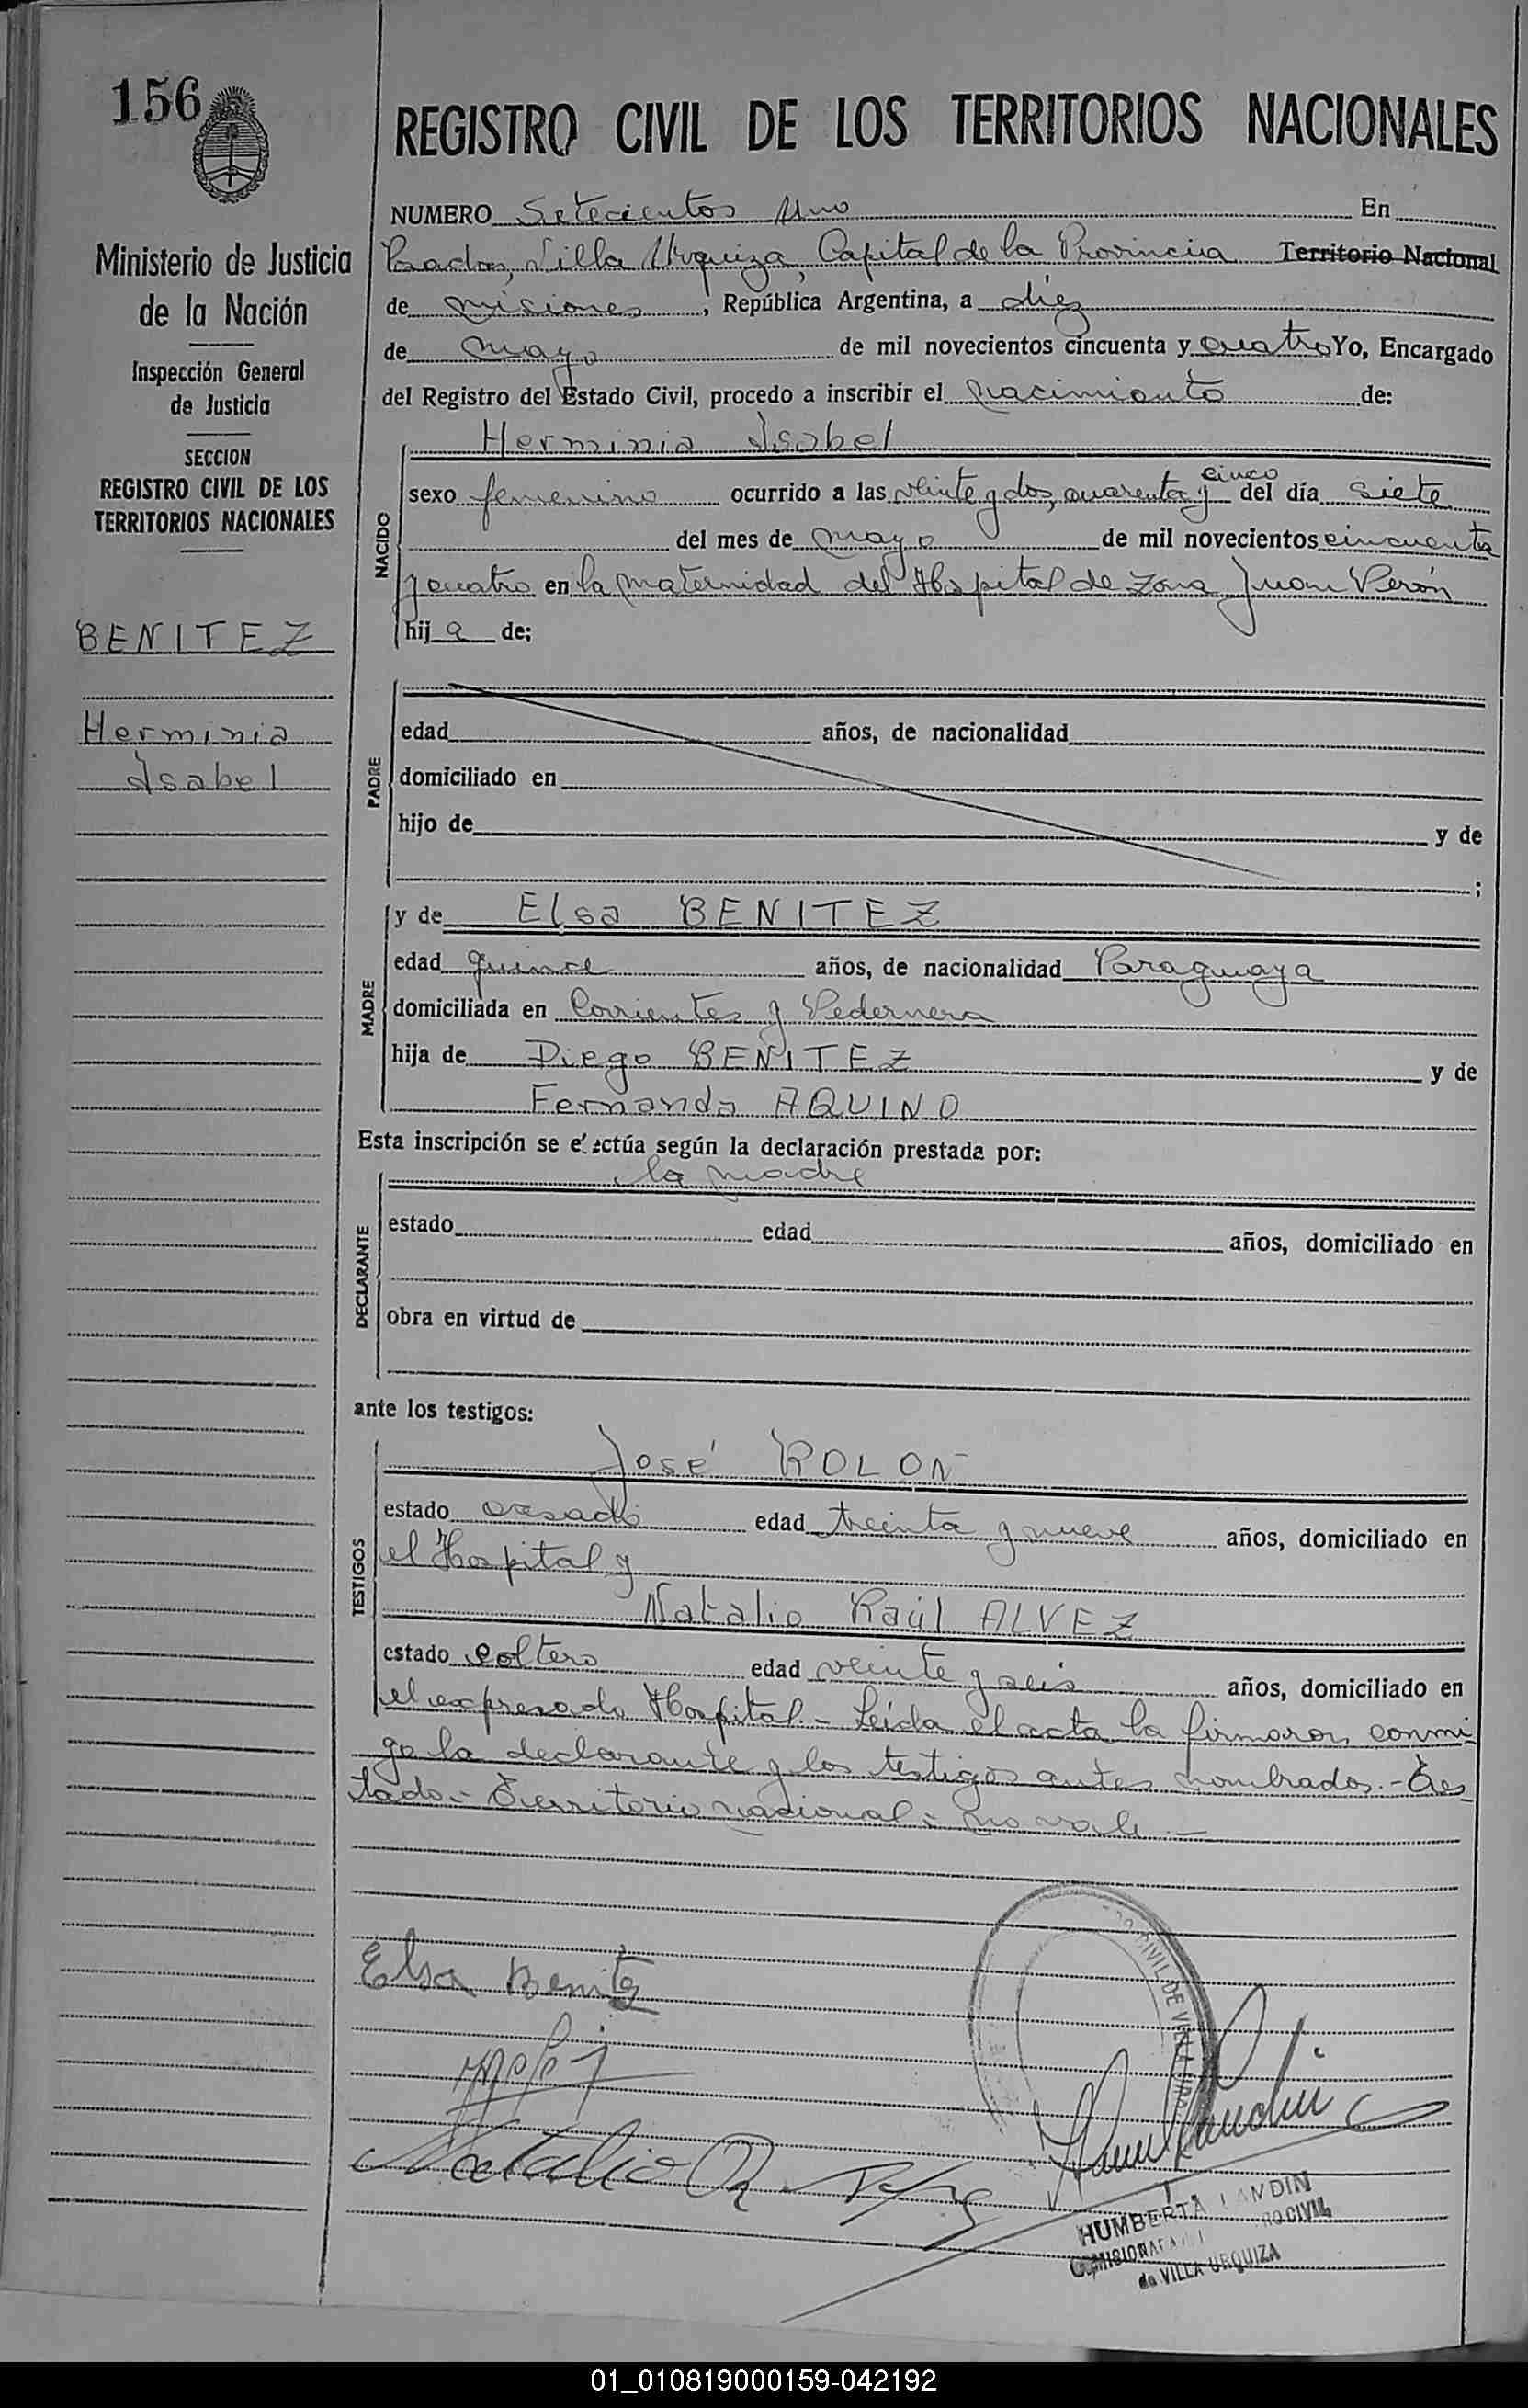 156
REGISTRO CIVIL DE LOS TERRITORIOS NACIONALES
Ministerio de Justicia
de la Nación
Inspección General
de Justicia
SECCION
REGISTRO CIVIL DE LOS
TERRITORIOS NACIONALES
BENITEZ
Herminia
Isabel
NUMERO Setecientos Uno En
Posadas, Villa Urquiza, Capital de la Provincia Territorio Nacional
de Misiones, República Argentina, a diez
de mayo de mil novecientos cincuenta y cuatro Yo, Encargado
del Registro del Estado Civil, procedo a inscribir el nacimiento de:
NACIDO
Herminia Isabel
sexo femenino ocurrido a las veinte y dos, cuarenta y cinco del día siete
del mes de mayo de mil novecientos cincuenta
y cuatro en la maternidad del Hospital de Zona Juan Perón
hija de:
PADRE
edad años, de nacionalidad
domiciliado en
hijo de y de
;
MADRE
y de Elsa BENITEZ
edad quince años, de nacionalidad Paraguaya
domiciliada en Corrientes y Pedernera
hija de Diego BENITEZ y de
Fernanda AQUINO
Esta inscripción se efectúa según la declaración prestada por:
DECLARANTE
la madre
estado edad años, domiciliado en
obra en virtud de
ante los testigos:
TESTIGOS
José ROLON
estado casado edad treinta y nueve años, domiciliado en
el Hospital y
Natalio Raúl ALVEZ
estado soltero edad veinte y seis años, domiciliado en
el expresado Hospital.- Leída el acta la firmaron conmi-
go la declarante y los testigos antes nombrados.- Tes-
tado - Territorio nacional - no vale.-
Elsa Benitez
Natalio R.
CIVIL DE VILLA URQ
HUMBERTA LANDIN
COMISIONADA CIVIL
de VILLA URQUIZA
01_010819000159-042192